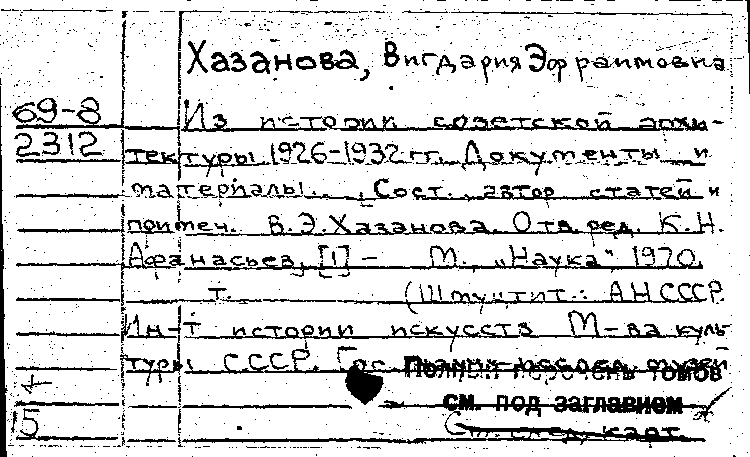 Хазанова, Вигдария Эфраимовна
69-8
Из истории советской архи-
2312
тектуры 1926-1932 гг. Документы и
материалы. , Сост., автор статей и
примеч. В.Э.Хазанова. Отв. ред. К.Н.
Афанасьев, [1] - М., „Наука" 1970.
т. (Шмуцтит.: АН СССР.
Ин-т истории искусств М-ва куль-
туры СССР. Гос.
Полный перечень томов
см. под заглавием
См. след. карт.
15